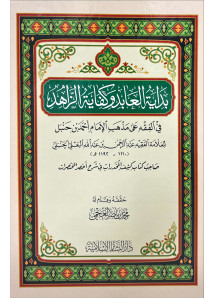 بداية العابد وكفاية الزاهد
في الفقه على مذهب الإمام أحمد بن حنبل
للعلامة الفقيه عبد الرحمن بن عبد الله البعلي الحنبلي
(١١١٠ - ١١٩٢ هـ)
صاحب كتاب كشف المخدرات في شرح أخصر المختصرات
حققه وقدم له
محمد بن ناصر العجمي
دار البشائر الإسلامية